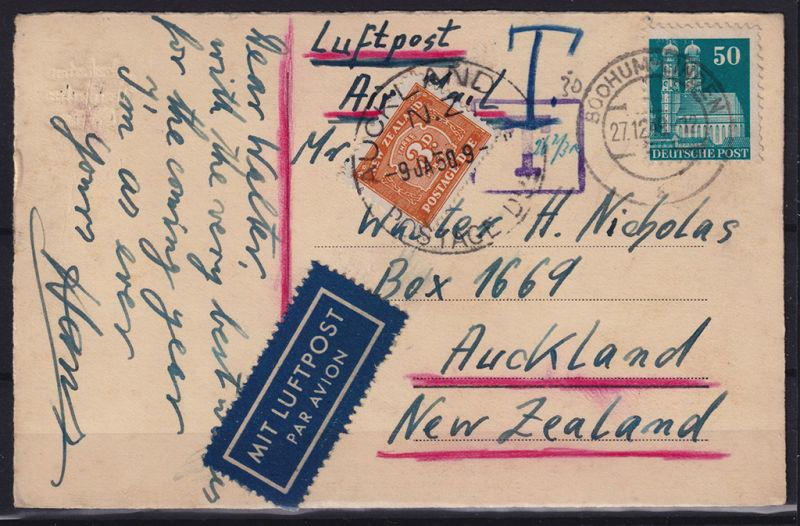 Dear Walter,
with the very best
for the coming year
I'm as ever
Yours
Hans
Luftpost
Air Mail
T.
T
50
DEUTSCHE POST
BOCHUM
27.12
AUCKLAND
N.Z.
-9 JA 50.9-
POSTAGE DUE
NEW ZEALAND
3D
POSTAGE
Mr.
Walter H. Nicholas
Box 1669
Auckland
New Zealand
MIT LUFTPOST
PAR AVION